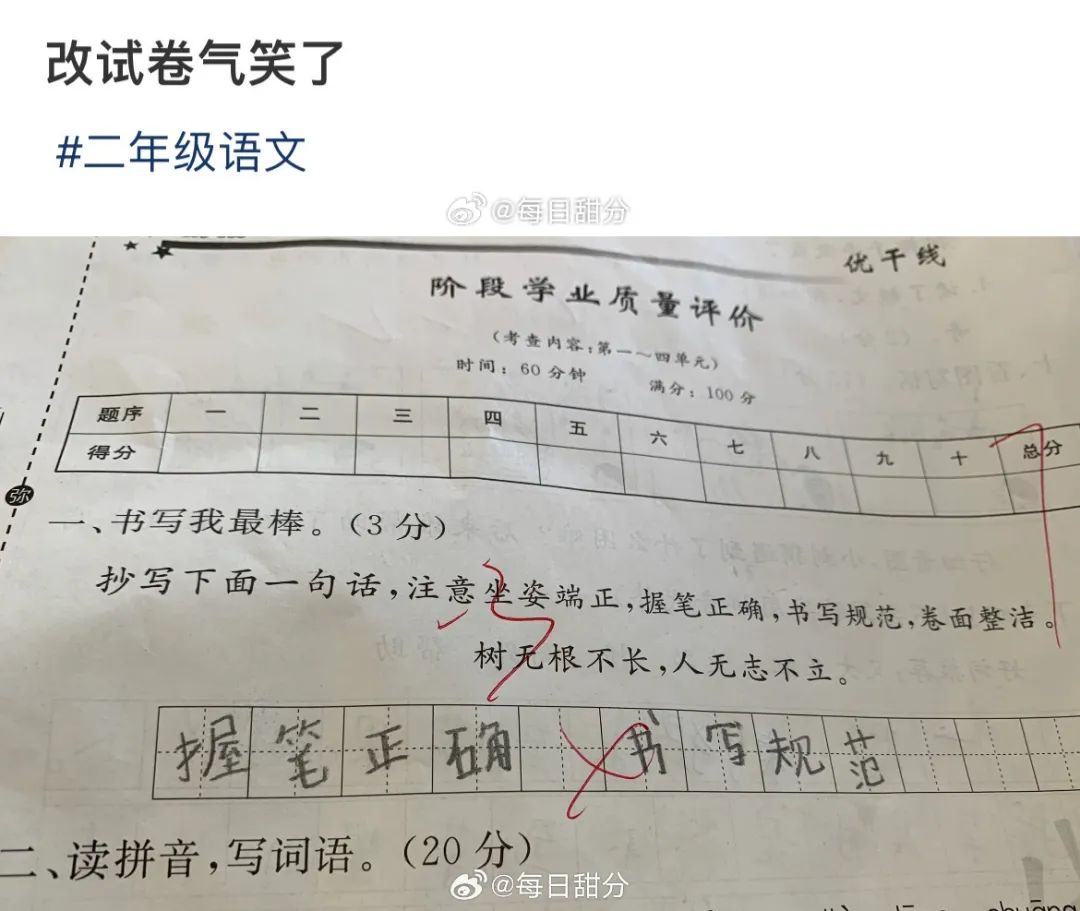 改试卷气笑了
#二年级语文
@每日甜分
优干线
阶段学业质量评价
(考查内容:第一~四单元)
时间:60分钟 满分:100分
题序 一 二 三 四 五 六 七 八 九 十 总分
得分
弥
一、书写我最棒。(3分)
抄写下面一句话,注意坐姿端正,握笔正确,书写规范,卷面整洁。
树无根不长,人无志不立。
握笔正确 书写规范
二、读拼音,写词语。(20分)
@每日甜分